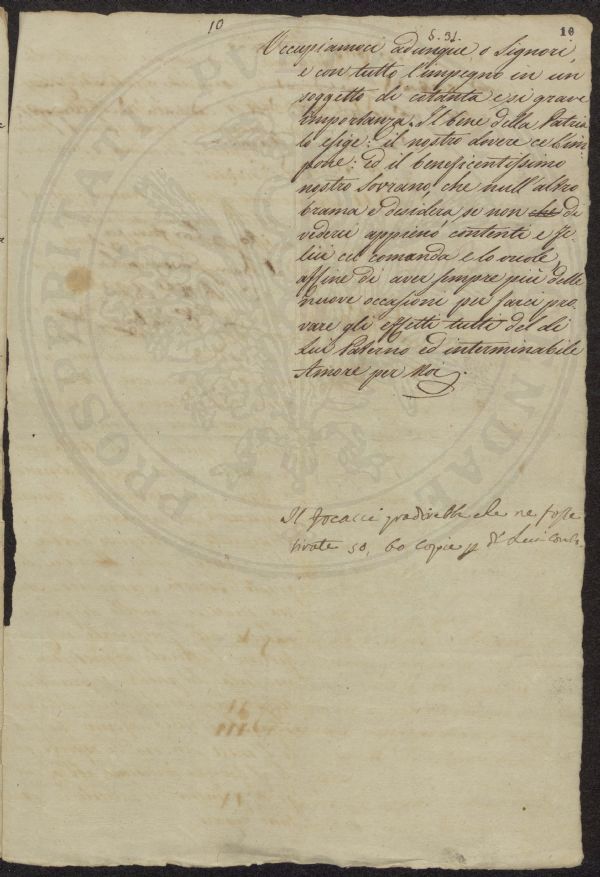 10
10
5. 31.
Occupiamoci adunque o Signori,
e con tutto l'impegno in un
soggetto di cotanta e si grave
importanza. Il bene della Patria
lo esige: il nostro dovere ce l'im-
pone: Ed il beneficentissimo
nostro Sovrano, che null'altro
brama e desidera, se non che di
vederci appieno contenti e fe-
lici ce comanda e lo vuole,
affine di aver sempre più delle
nuove occasioni per farci pro-
vare gli effetti tutti del di
Lui Paterno ed interminabile
Amore per Noi.
Il Focacci gradirebbe che ne fosse
tirate 50, 60 copie p di Lui conto.
PROSPERITATI